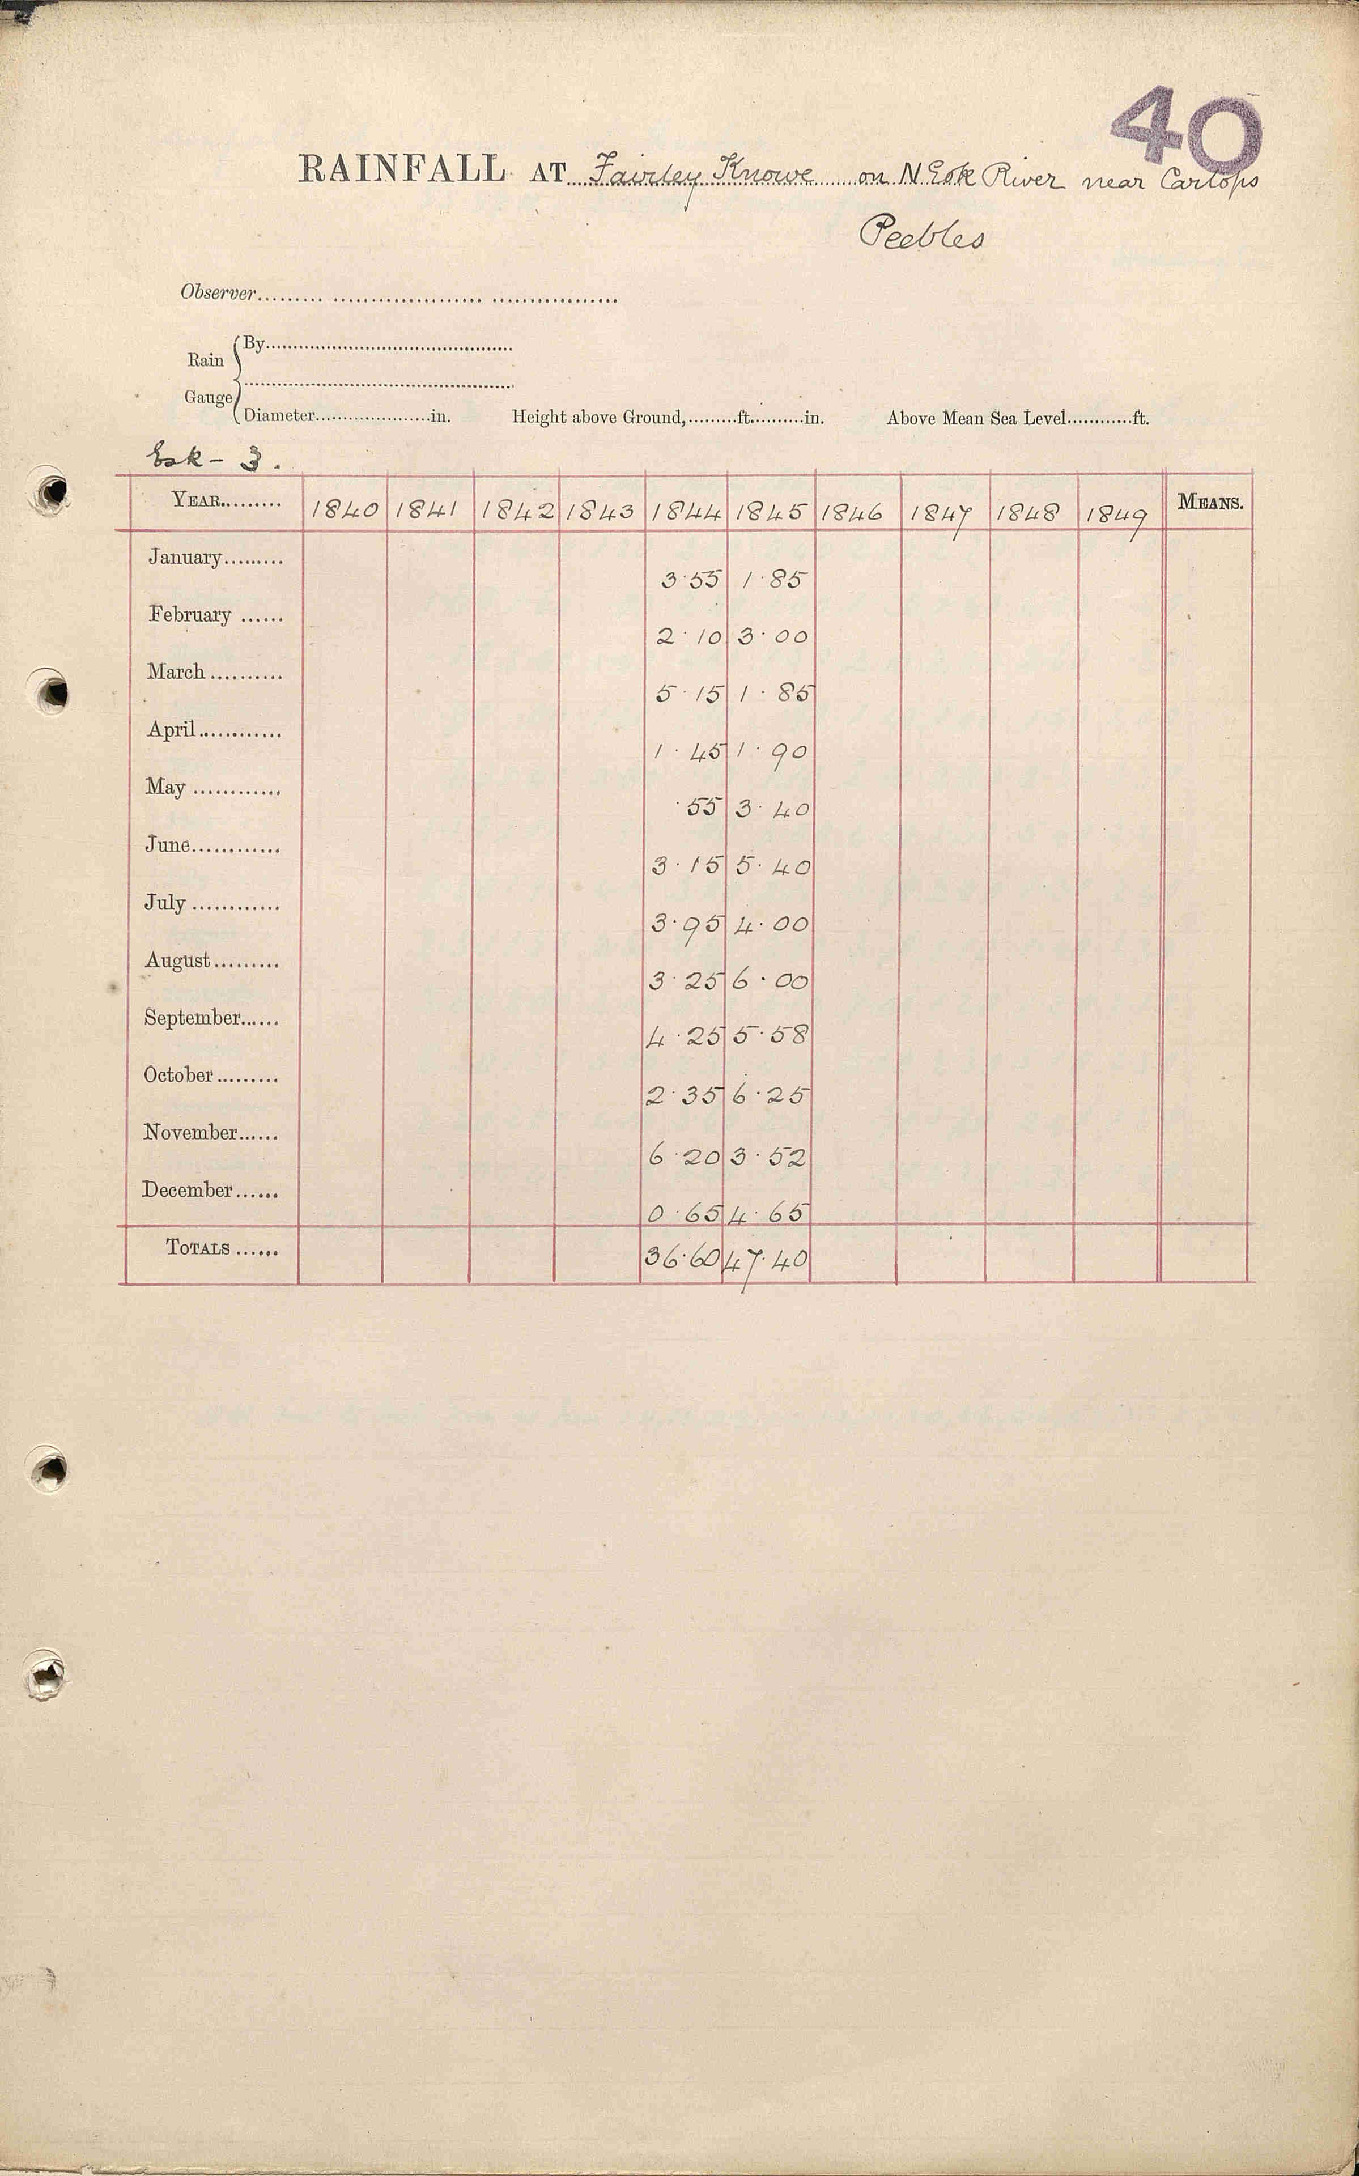 40
RAINFALL AT Fairley Knowe on N Esk River near Carlops
Peebles
Observer
Rain Gauge { By
Diameter in. Height above Ground, ft. in. Above Mean Sea Level ft.
Esk - 3.
YEAR 1840 1841 1842 1843 1844 1845 1846 1847 1848 1849 MEANS.
January 3·55 1·85
February 2·10 3·00
March 5·15 1·85
April 1·45 1·90
May ·55 3·40
June 3·15 5·40
July 3·95 4·00
August 3·25 6·00
September 4·25 5·58
October 2·35 6·25
November 6·20 3·52
December 0·65 4·65
TOTALS 36·60 47·40